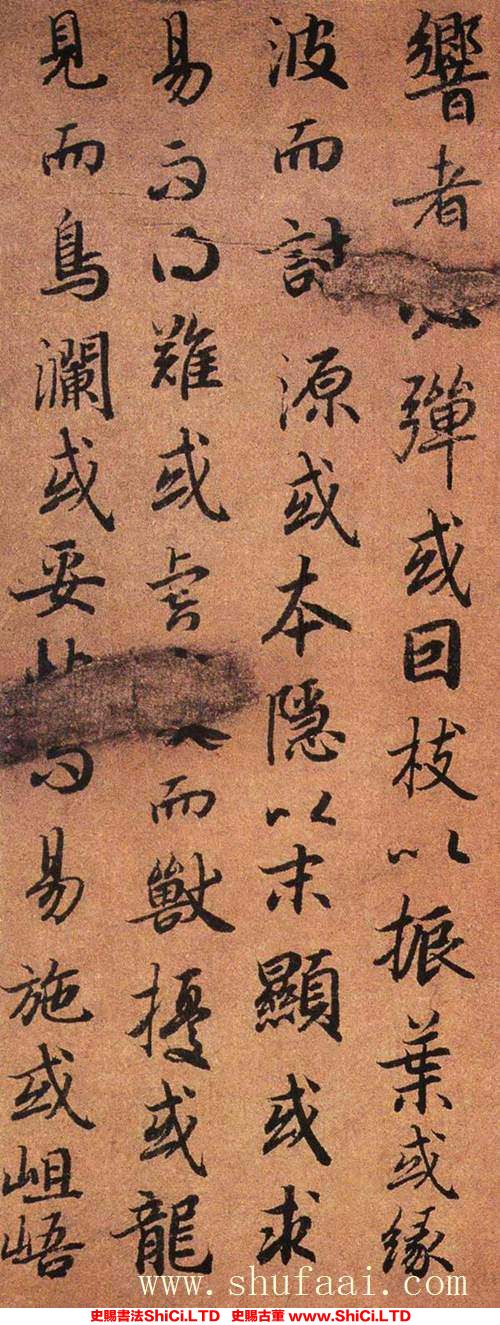 響者彈或因枝以振葉或緣
波而討源或本隱以末顯或求
易而得難或虎而獸擾或龍
見而鳥瀾或妥而易施或岨峿
www.shufaai.com
史賜書法ShiCi.LTD 史賜古董 www.ShiCi.LTD